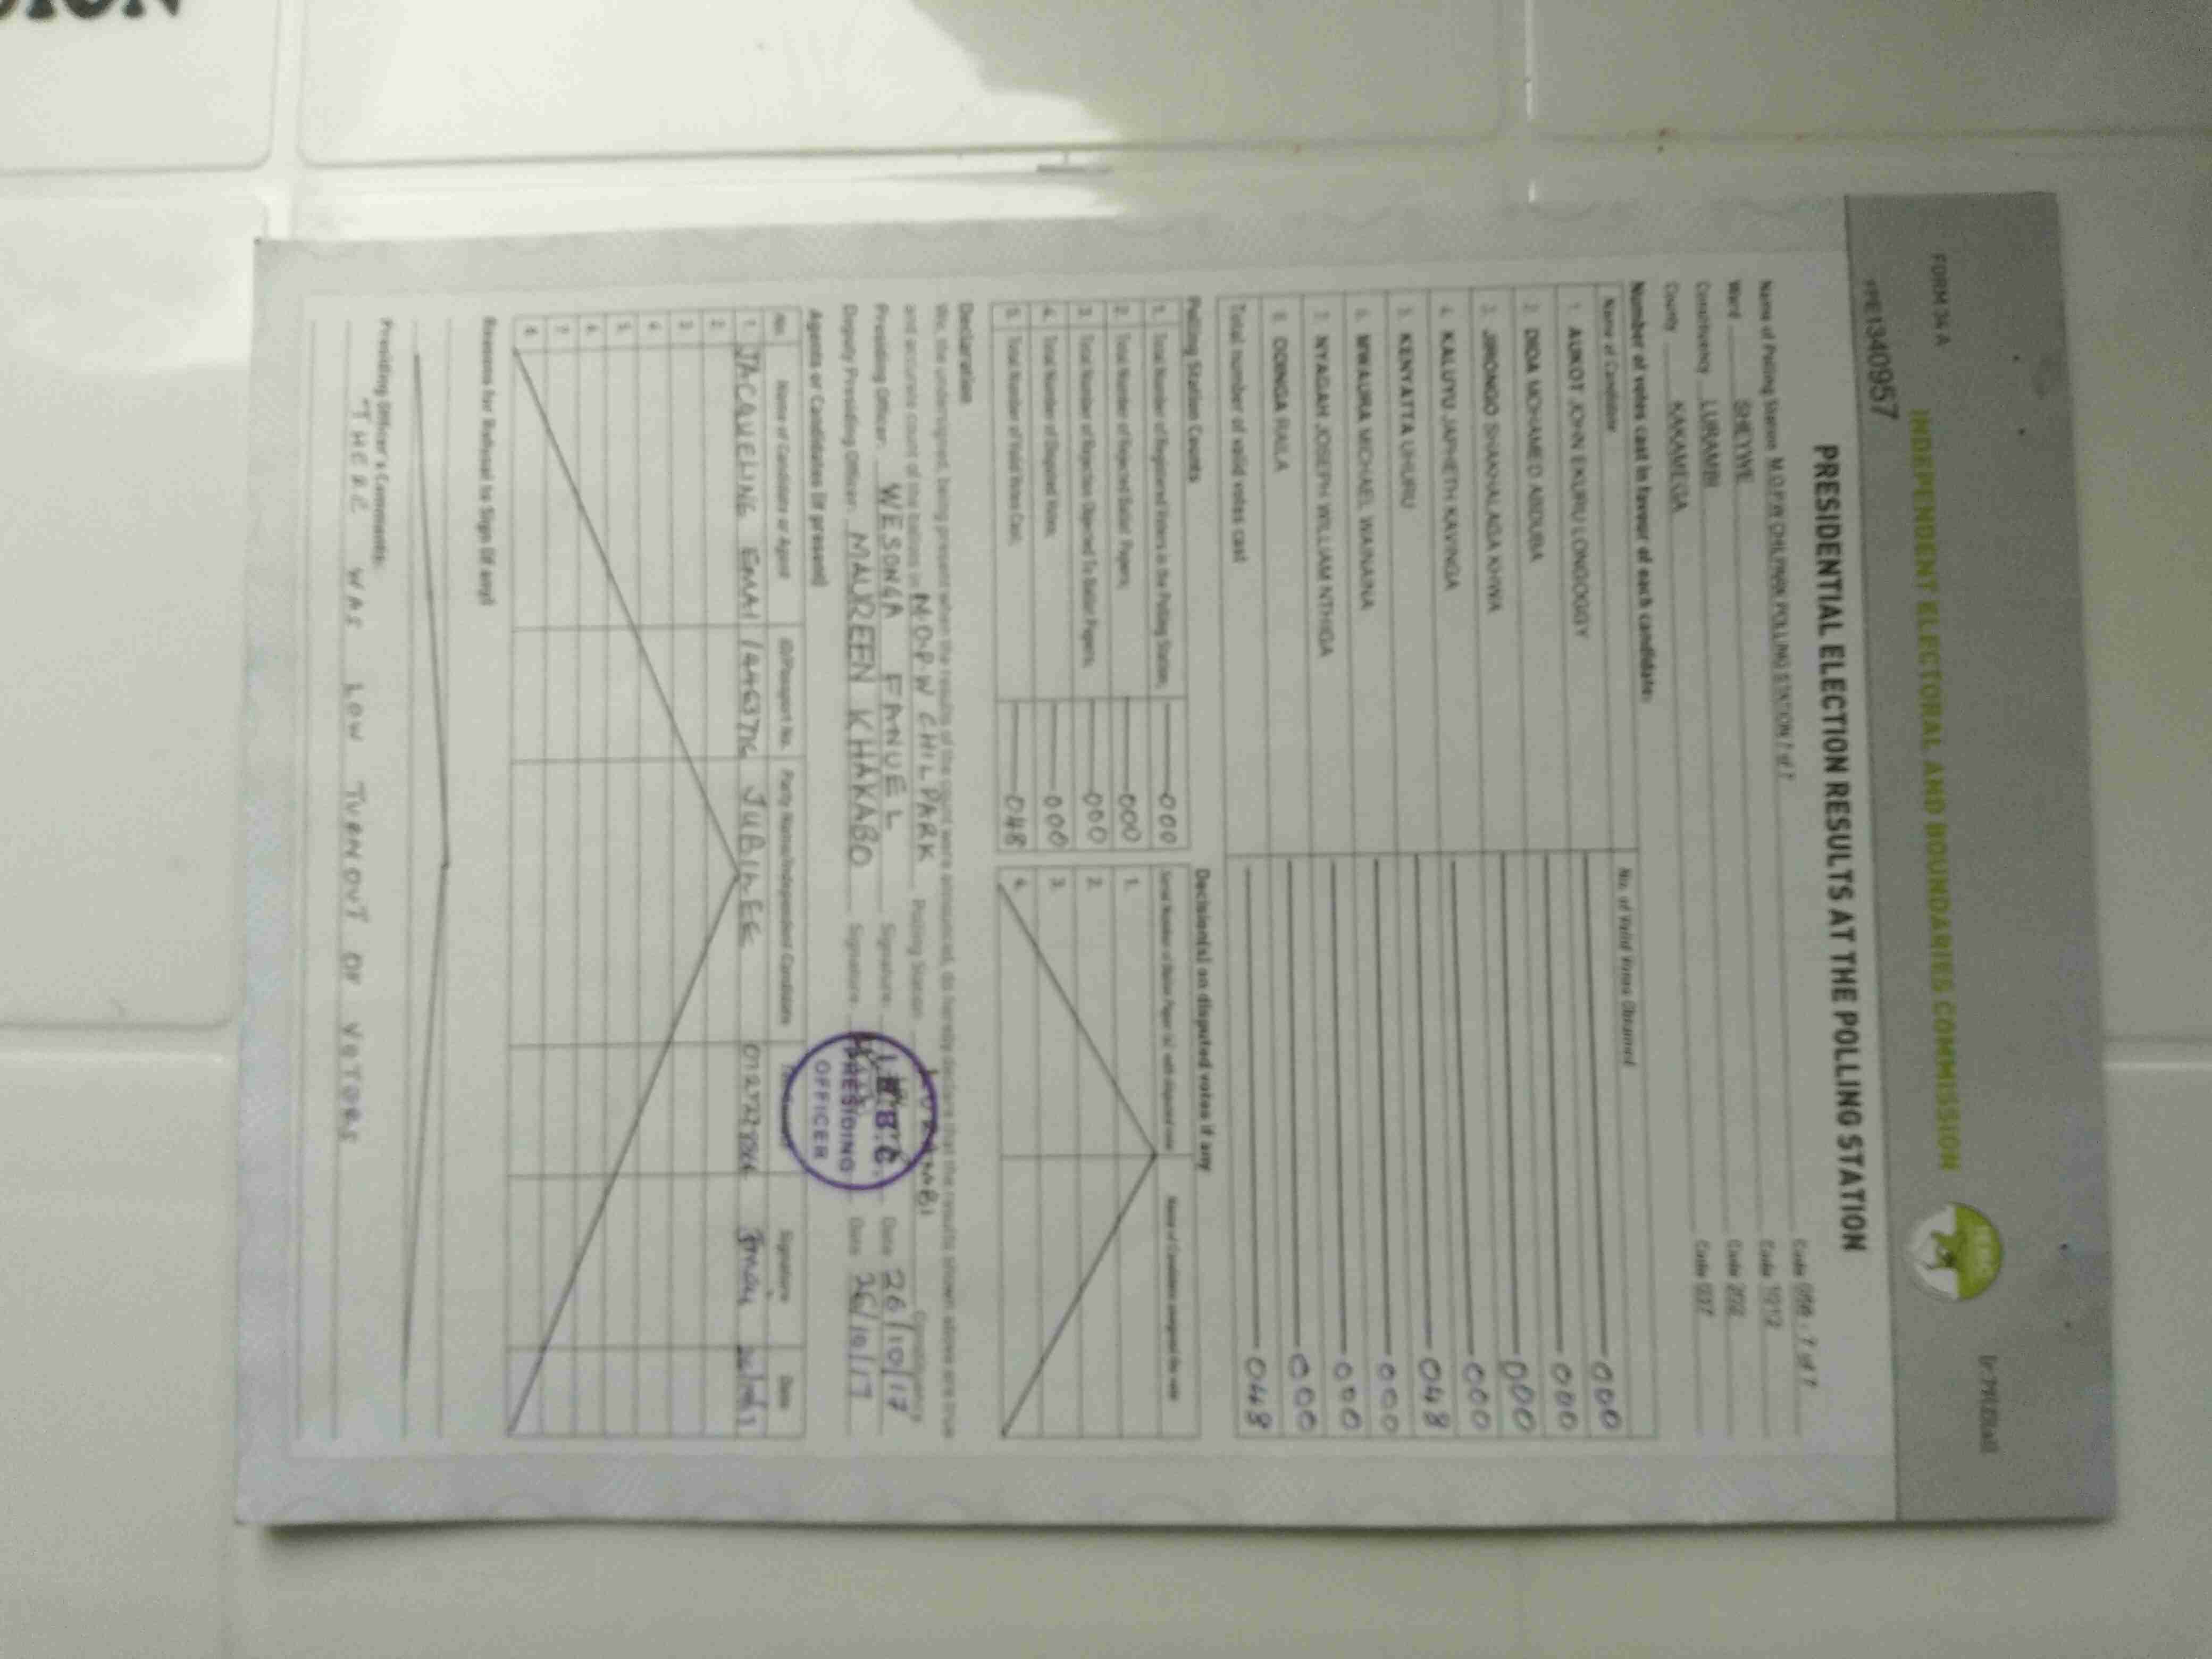 FORM 34 A
INDEPENDENT ELECTORAL AND BOUNDARIES COMMISSION
IEBC
PE1340957
PRESIDENTIAL ELECTION RESULTS AT THE POLLING STATION
Name of Polling Station M.O.P.W CHILPARK POLLING STATION 7 of 7 Code 7 of 7
Ward SHEYWE Code 1012
Constituency LURAMBI Code 202
County KAKAMEGA Code 037
Number of votes cast in favour of each candidate:
Name of Candidate No. of Valid Votes Obtained
1. AUKOT JOHN EKURU LONGOGGY 000
2. DIDA MOHAMED ABDUBA 000
3. JIRONGO SHAKHALAGA KHWA 000
4. KALUYU JAPHETH KAVINGA 000
5. KENYATTA UHURU 048
6. MWAURA MICHAEL WAINAINA 000
7. NYAGAH JOSEPH WILLIAM NTHIGA 000
8. ODINGA RAILA 000
Total number of valid votes cast 048
Polling Station Counts
1. Total Number of Registered Voters in the Polling Station; 000
2. Total Number of Rejected Ballot Papers; 000
3. Total Number of Rejection Objected To Ballot Papers; 000
4. Total Number of Disputed Votes; 000
5. Total Number of Valid Votes Cast; 048
Decision(s) on disputed votes if any
1.
2.
3.
4.
Declaration
We, the undersigned, being present when the results of the count were announced, do hereby declare that the results shown above are true
and accurate count of the ballots in M.O.P.W CHILPARK Polling Station Constituency
Presiding Officer: WESONGA FANUEL Signature: Date 26/10/17
Deputy Presiding Officer: MAUREEN KHAKABO Signature: Date 26/10/17
I.E.B.C.
PRESIDING
OFFICER
Agents or Candidates (if present)
No. Name of Candidate or Agent ID/Passport No. Party Name/Independent Candidate Signature Date
1. JACQUELINE JUBILEE
2.
3.
4.
5.
6.
7.
8.
Reasons for Refusal to Sign (if any)
Presiding Officer's Comments:
THERE WAS LOW TURNOUT OF VOTORS